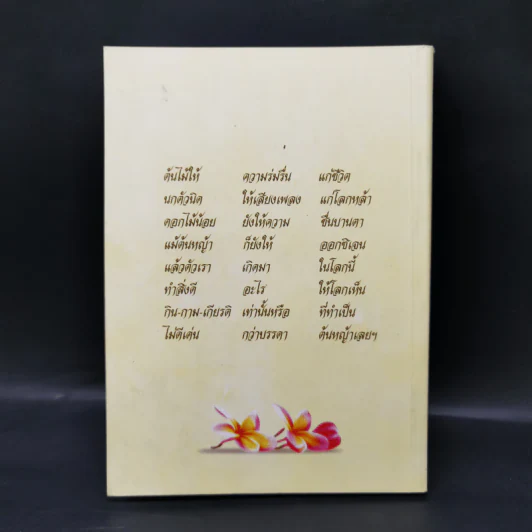 ต้นไม้ให้ ความร่มรื่น แก่ชีวิต
นกตัวนิด ให้เสียงเพลง แก่โลกหล้า
ดอกไม้น้อย ยังให้ความ ชื่นบานตา
แม้ต้นหญ้า ก็ยังให้ ออกซิเจน
แล้วตัวเรา เกิดมา ในโลกนี้
ทำสิ่งดี อะไร ให้โลกเห็น
กิน-กาม-เกียรติ เท่านั้นหรือ ที่ทำเป็น
ไม่ดีเด่น กว่าบรรดา ต้นหญ้าเลยฯ